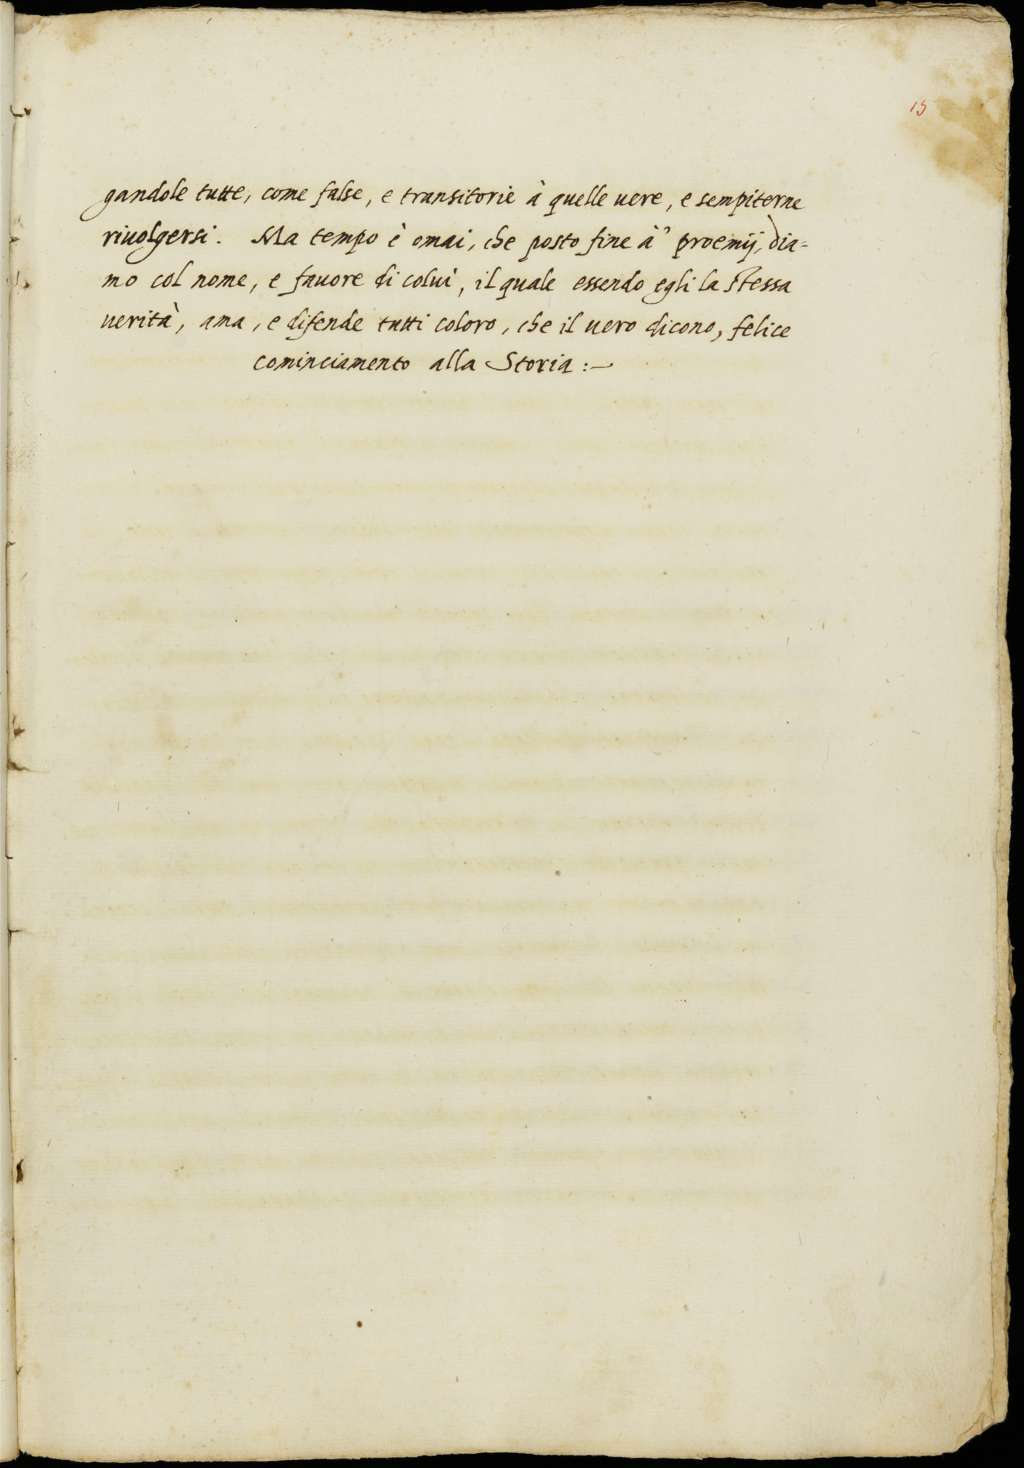 15
gandole tutte, come false, e transitorie à quelle uere, e sempiterne
riuolgersi. Ma tempo è omai, che posto fine à' proemij, dia=
mo col nome, e fauore di colui, il quale essendo egli la stessa
uerità, ama, e difende tutti coloro, che il uero dicono, felice
cominciamento alla Storia :~